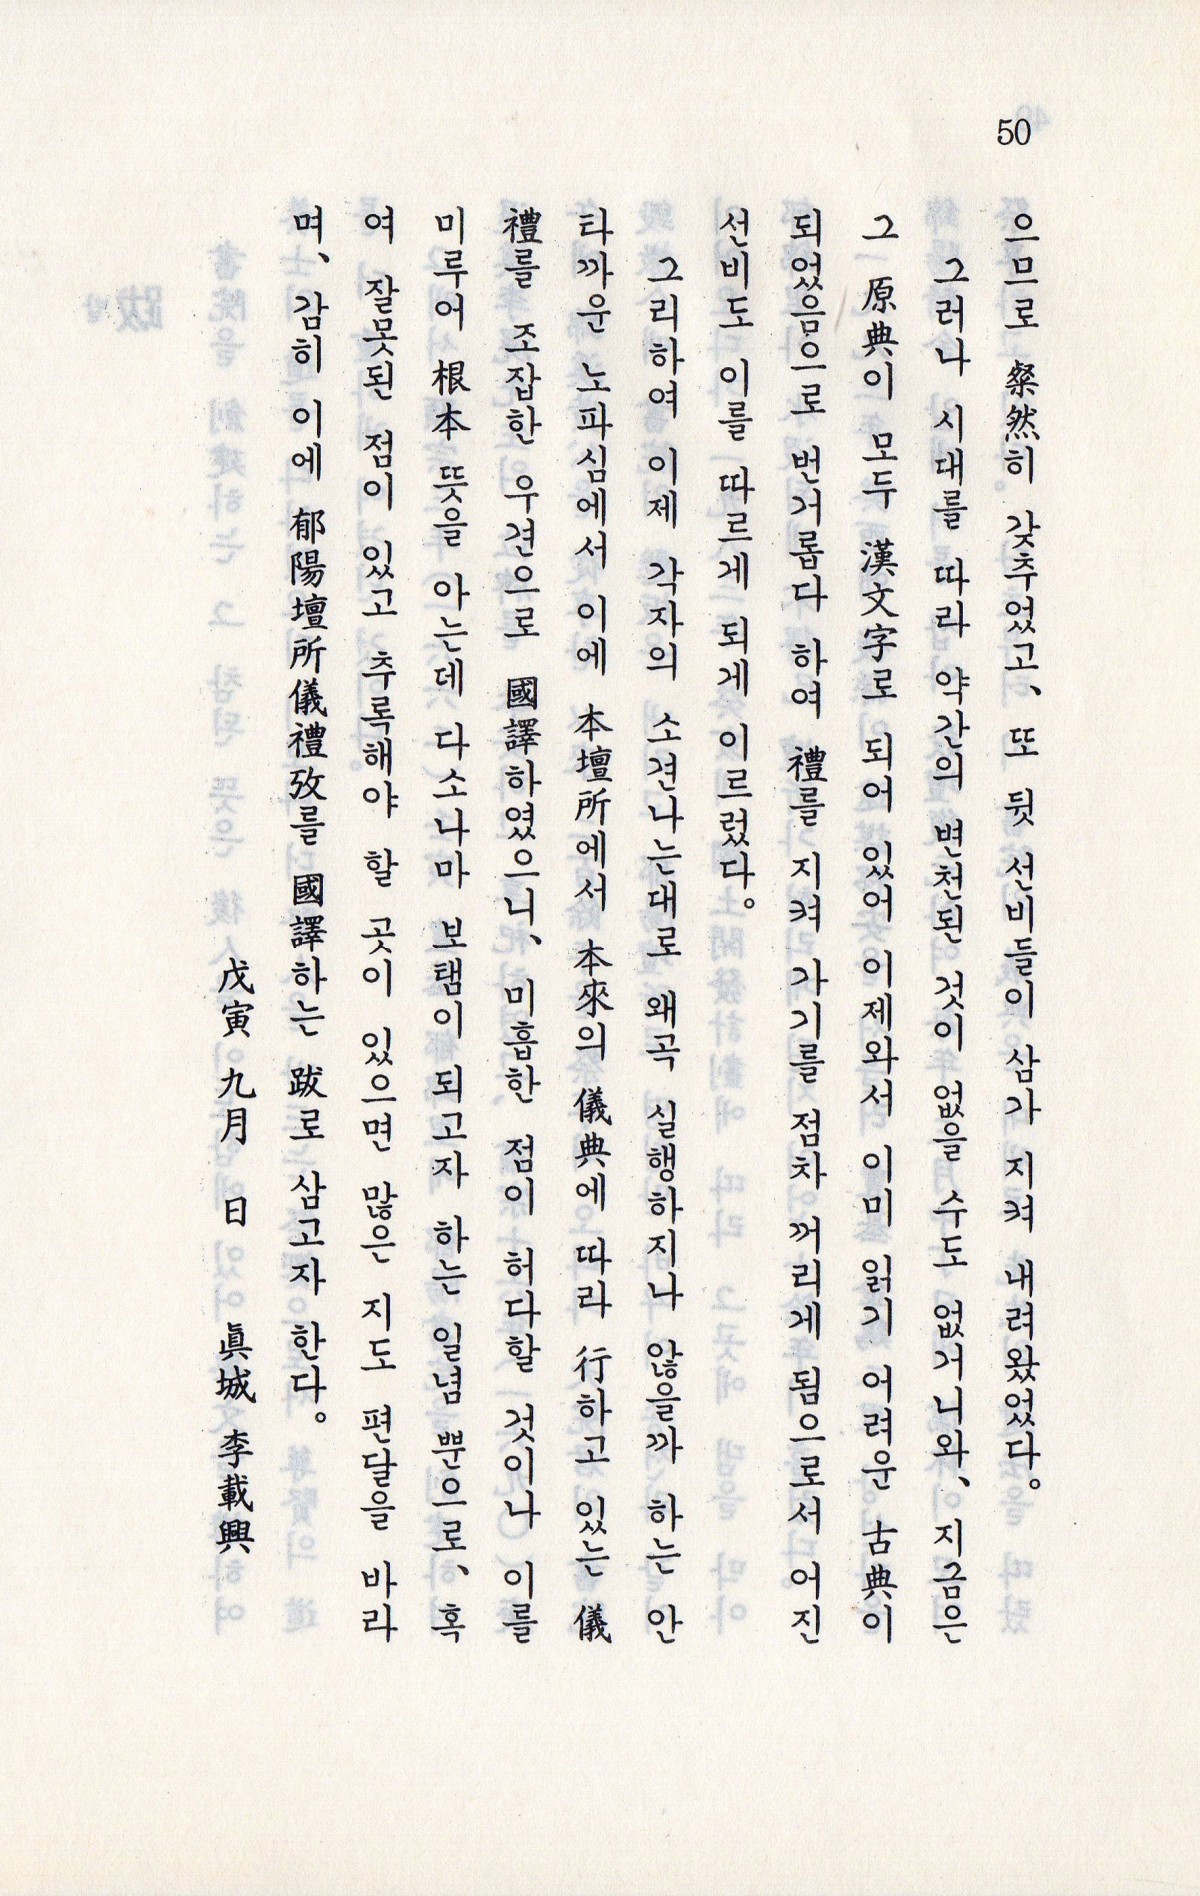 50
으므로 粲然히 갖추었고、또 뒷 선비들이 삼가 지켜 내려왔었다。
그러나 시대를 따라 약간의 변천된 것이 없을 수도 없거니와、지금은
그 原典이 모두 漢文字로 되어 있어 이제와서 이미 읽기 어려운 古典이
되었음으로 번거롭다 하여 禮를 지켜 가기를 점차 꺼리게 됨으로서 어진
선비도 이를 따르게 되게 이르렀다。
그리하여 이제 각자의 소견나는대로 왜곡 실행하지나 않을까 하는 안
타까운 노파심에서 이에 本壇所에서 本來의 儀典에 따라 行하고 있는 儀
禮를 조잡한 우견으로 國譯하였으니、미흡한 점이 허다할 것이나 이를
미루어 根本 뜻을 아는데 다소나마 보탬이 되고자 하는 일념 뿐으로、혹
여 잘못된 점이 있고 추록해야 할 곳이 있으면 많은 지도 편달을 바라
며、감히 이에 郁陽壇所儀禮攷를 國譯하는 跋로 삼고자 한다。
戊寅 九月 日 眞城 李載興